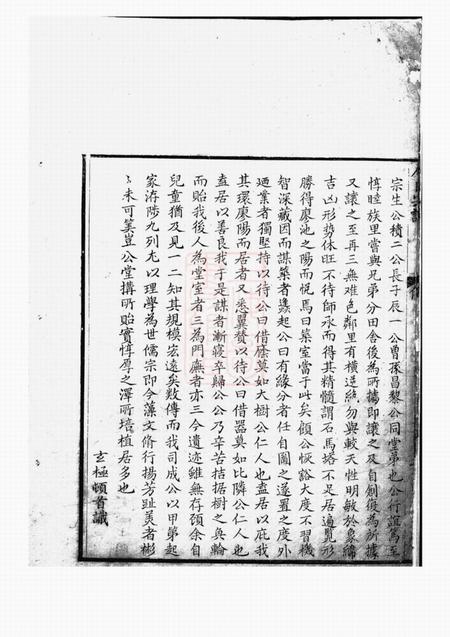 宗生公積二公長子辰一公曾孫昌黎公同堂弟也公行誼篤至
惇睦族里嘗與兄弟分田舍後為所據即讓之及自創後為所據
又讓之至再三無难色鄰里有橫逆絶勿與較天性明敏於象緯
吉凶形勢体旺不待師承而得其精髓謂石馬塔不足居遍覓形
勝得廖池之陽而悦焉曰築室當于此矣顧公恢豁大度不習機
智深藏因而謀築者蠭起公曰有緣分者任自圖之遂置之度外
廼業者獨堅持以待公曰借廕莫如大樹公仁人也盍居以庇我
其環廖陽而居者又悉翼賛以待公曰借器莫如比隣公仁人也
盍居以善良我于是謀者漸寢卒歸公公乃辛苦拮据樹之奐輪
而貽我後人為堂室者三為門廡者亦三今遺迹雖無存頋余自
兒童猶及見一二知其規模宏遠矣数傳而我司成公以甲第起
家洊陟九列尤以理學為世儒宗即今藻文脩行揚芳趾羙者彬
〻未可筭豈公堂搆所貽實惇厚之澤所培植居多也
玄極頓首識